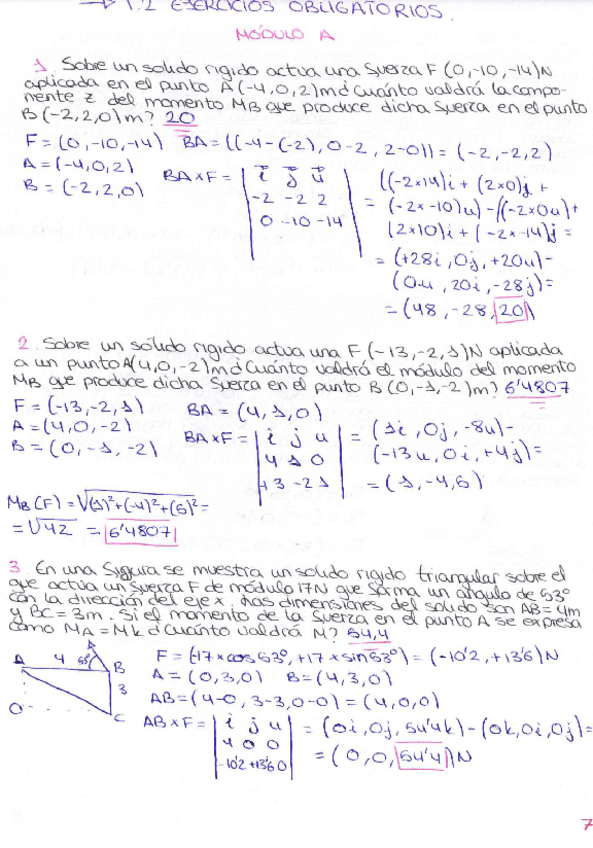 → 1.2 EJERCICIOS OBLIGATORIOS.
MÓDULO A
1 Sobre un solido rigido actua una fuerza F (0,-10,-14)N
aplicada en el punto A (-4,0,2)m ¿Cuánto valdrá la compo-
nente z del momento MB que produce dicha fuerza en el punto
B (-2,2,0)m? 20
F = (0,-10,-14) BA = ((-4-(-2), 0-2, 2-0)) = (-2,-2,2)
A = (-4,0,2)
B = (-2,2,0)
BA x F = | i j u |
-2 -2 2
0 -10 -14
((-2x14)i + (2x0)j +
= (-2x-10)u) - ((-2x0u)+
(2x10)i + (-2x-14)j =
= (+28i, 0j, +20u) -
(0u, 20i, -28j) =
= (48, -28, 20)
2. Sobre un sólido rigido actua una F (-13,-2,1)N aplicada
a un punto A(4,0,-2)m ¿Cuánto valdrá el módulo del momento
MB que produce dicha fuerza en el punto B (0,-1,-2)m? 6'4807
F = (-13,-2,1) BA = (4,1,0)
A = (4,0,-2)
B = (0,-1,-2)
BA x F = | i j u | = (1i, 0j, -8u) -
4 1 0 (-13u, 0i, +4j) =
-13 -2 1 = (1,-4,5)
MB (F) = √(1)²+(-4)²+(5)² =
= √42 = 6'4807
3 En una figura se muestra un solido rigido triangular sobre el
que actúa un fuerza F de módulo 17N que forma un angulo de 53º
con la dirección del eje x. Las dimensiones del solido son AB = 4m
y BC = 3m. Si el momento de la fuerza en el punto A se expresa
como MA = Mk ¿Cuánto valdrá M? 54,4
A 4 53º B
3
O C
F = (-17 x cos 53º, +17 x sin 53º) = (-10'2, +13'6) N
A = (0,3,0) B = (4,3,0)
AB = (4-0, 3-3, 0-0) = (4,0,0)
AB x F = | i j u | = (0i, 0j, 54'4k) - (0k, 0i, 0j) =
4 0 0
-10'2 +13'6 0 = (0,0, 54'4) N
7